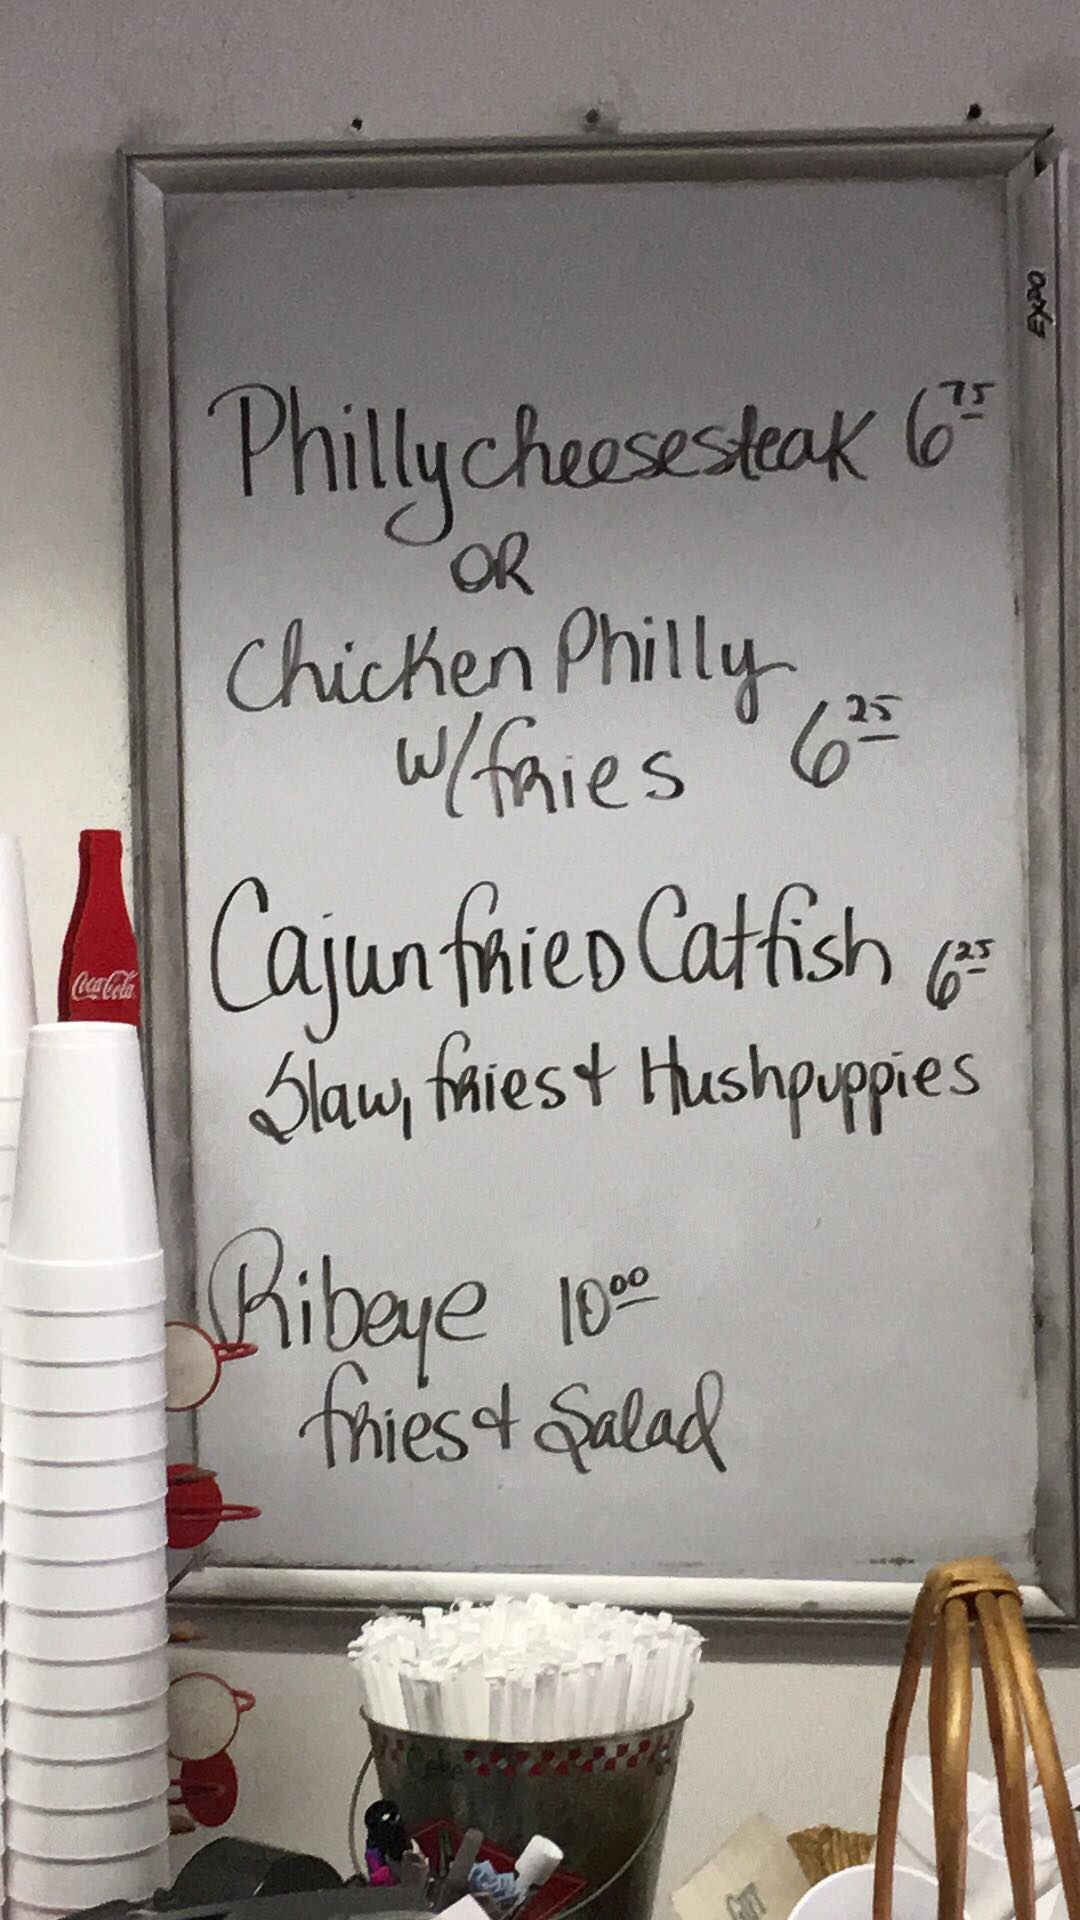 EXPO
Philly cheesesteak 6 75
OR
Chicken Philly
w/fries 6 25
Cajun fried Catfish 6 25
Slaw, fries & Hushpuppies
Ribeye 10 00
fries & Salad
Coca-Cola
Coke